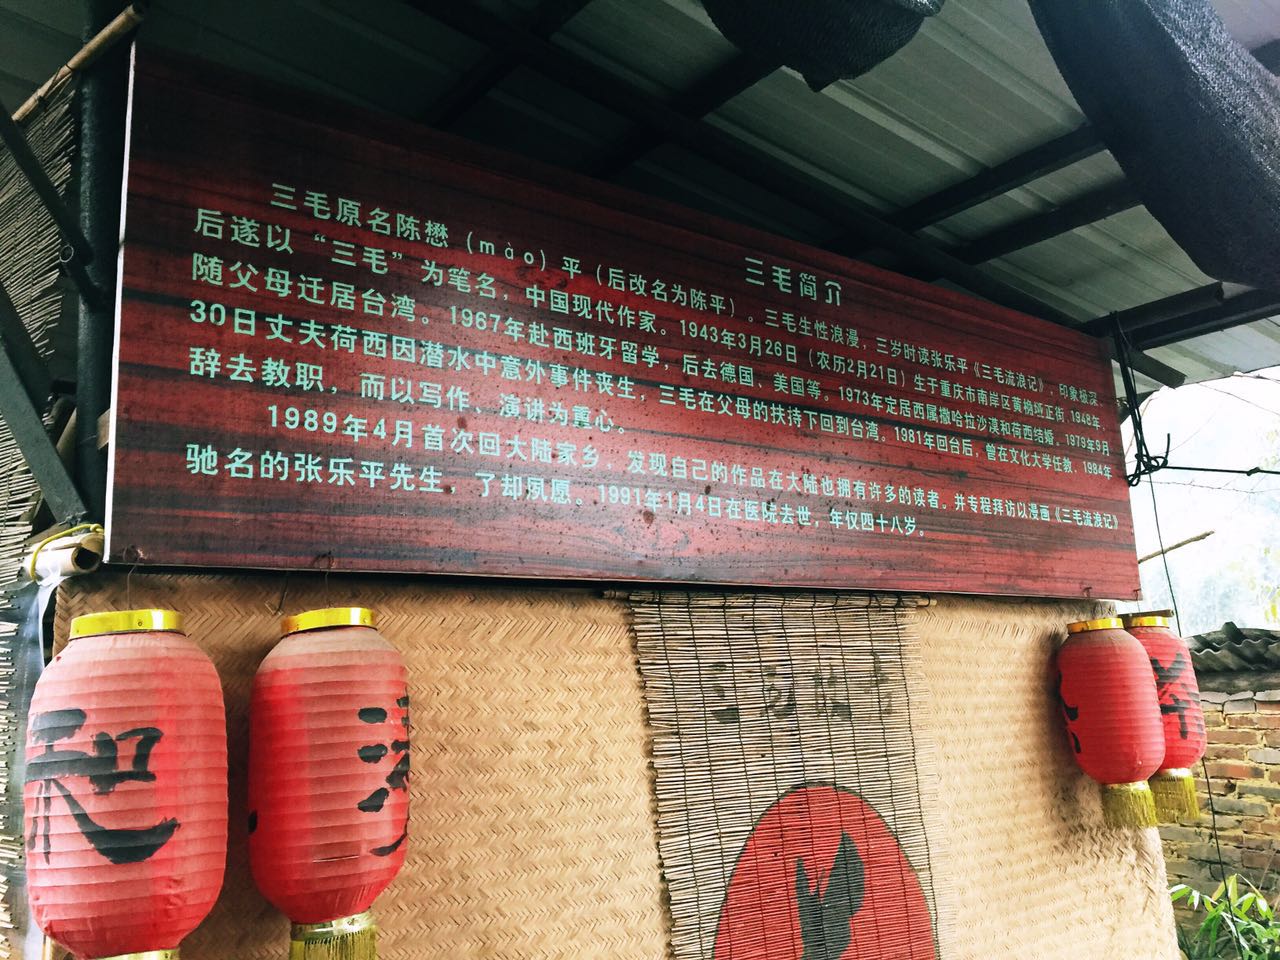 三毛简介
三毛原名陈懋（mào）平（后改名为陈平）。三毛生性浪漫，三岁时读张乐平《三毛流浪记》，印象极深，
后遂以“三毛”为笔名，中国现代作家。1943年3月26日（农历2月21日）生于重庆市南岸区黄桷垭正街，1948年，
随父母迁居台湾。1967年赴西班牙留学，后去德国、美国等。1973年定居西属撒哈拉沙漠和荷西结婚。1979年9月
30日丈夫荷西因潜水中意外事件丧生，三毛在父母的扶持下回到台湾。1981年回台后，曾在文化大学任教，1984年
辞去教职，而以写作、演讲为重心。
1989年4月首次回大陆家乡，发现自己的作品在大陆也拥有许多的读者。并专程拜访以漫画《三毛流浪记》
驰名的张乐平先生，了却夙愿。1991年1月4日在医院去世，年仅四十八岁。